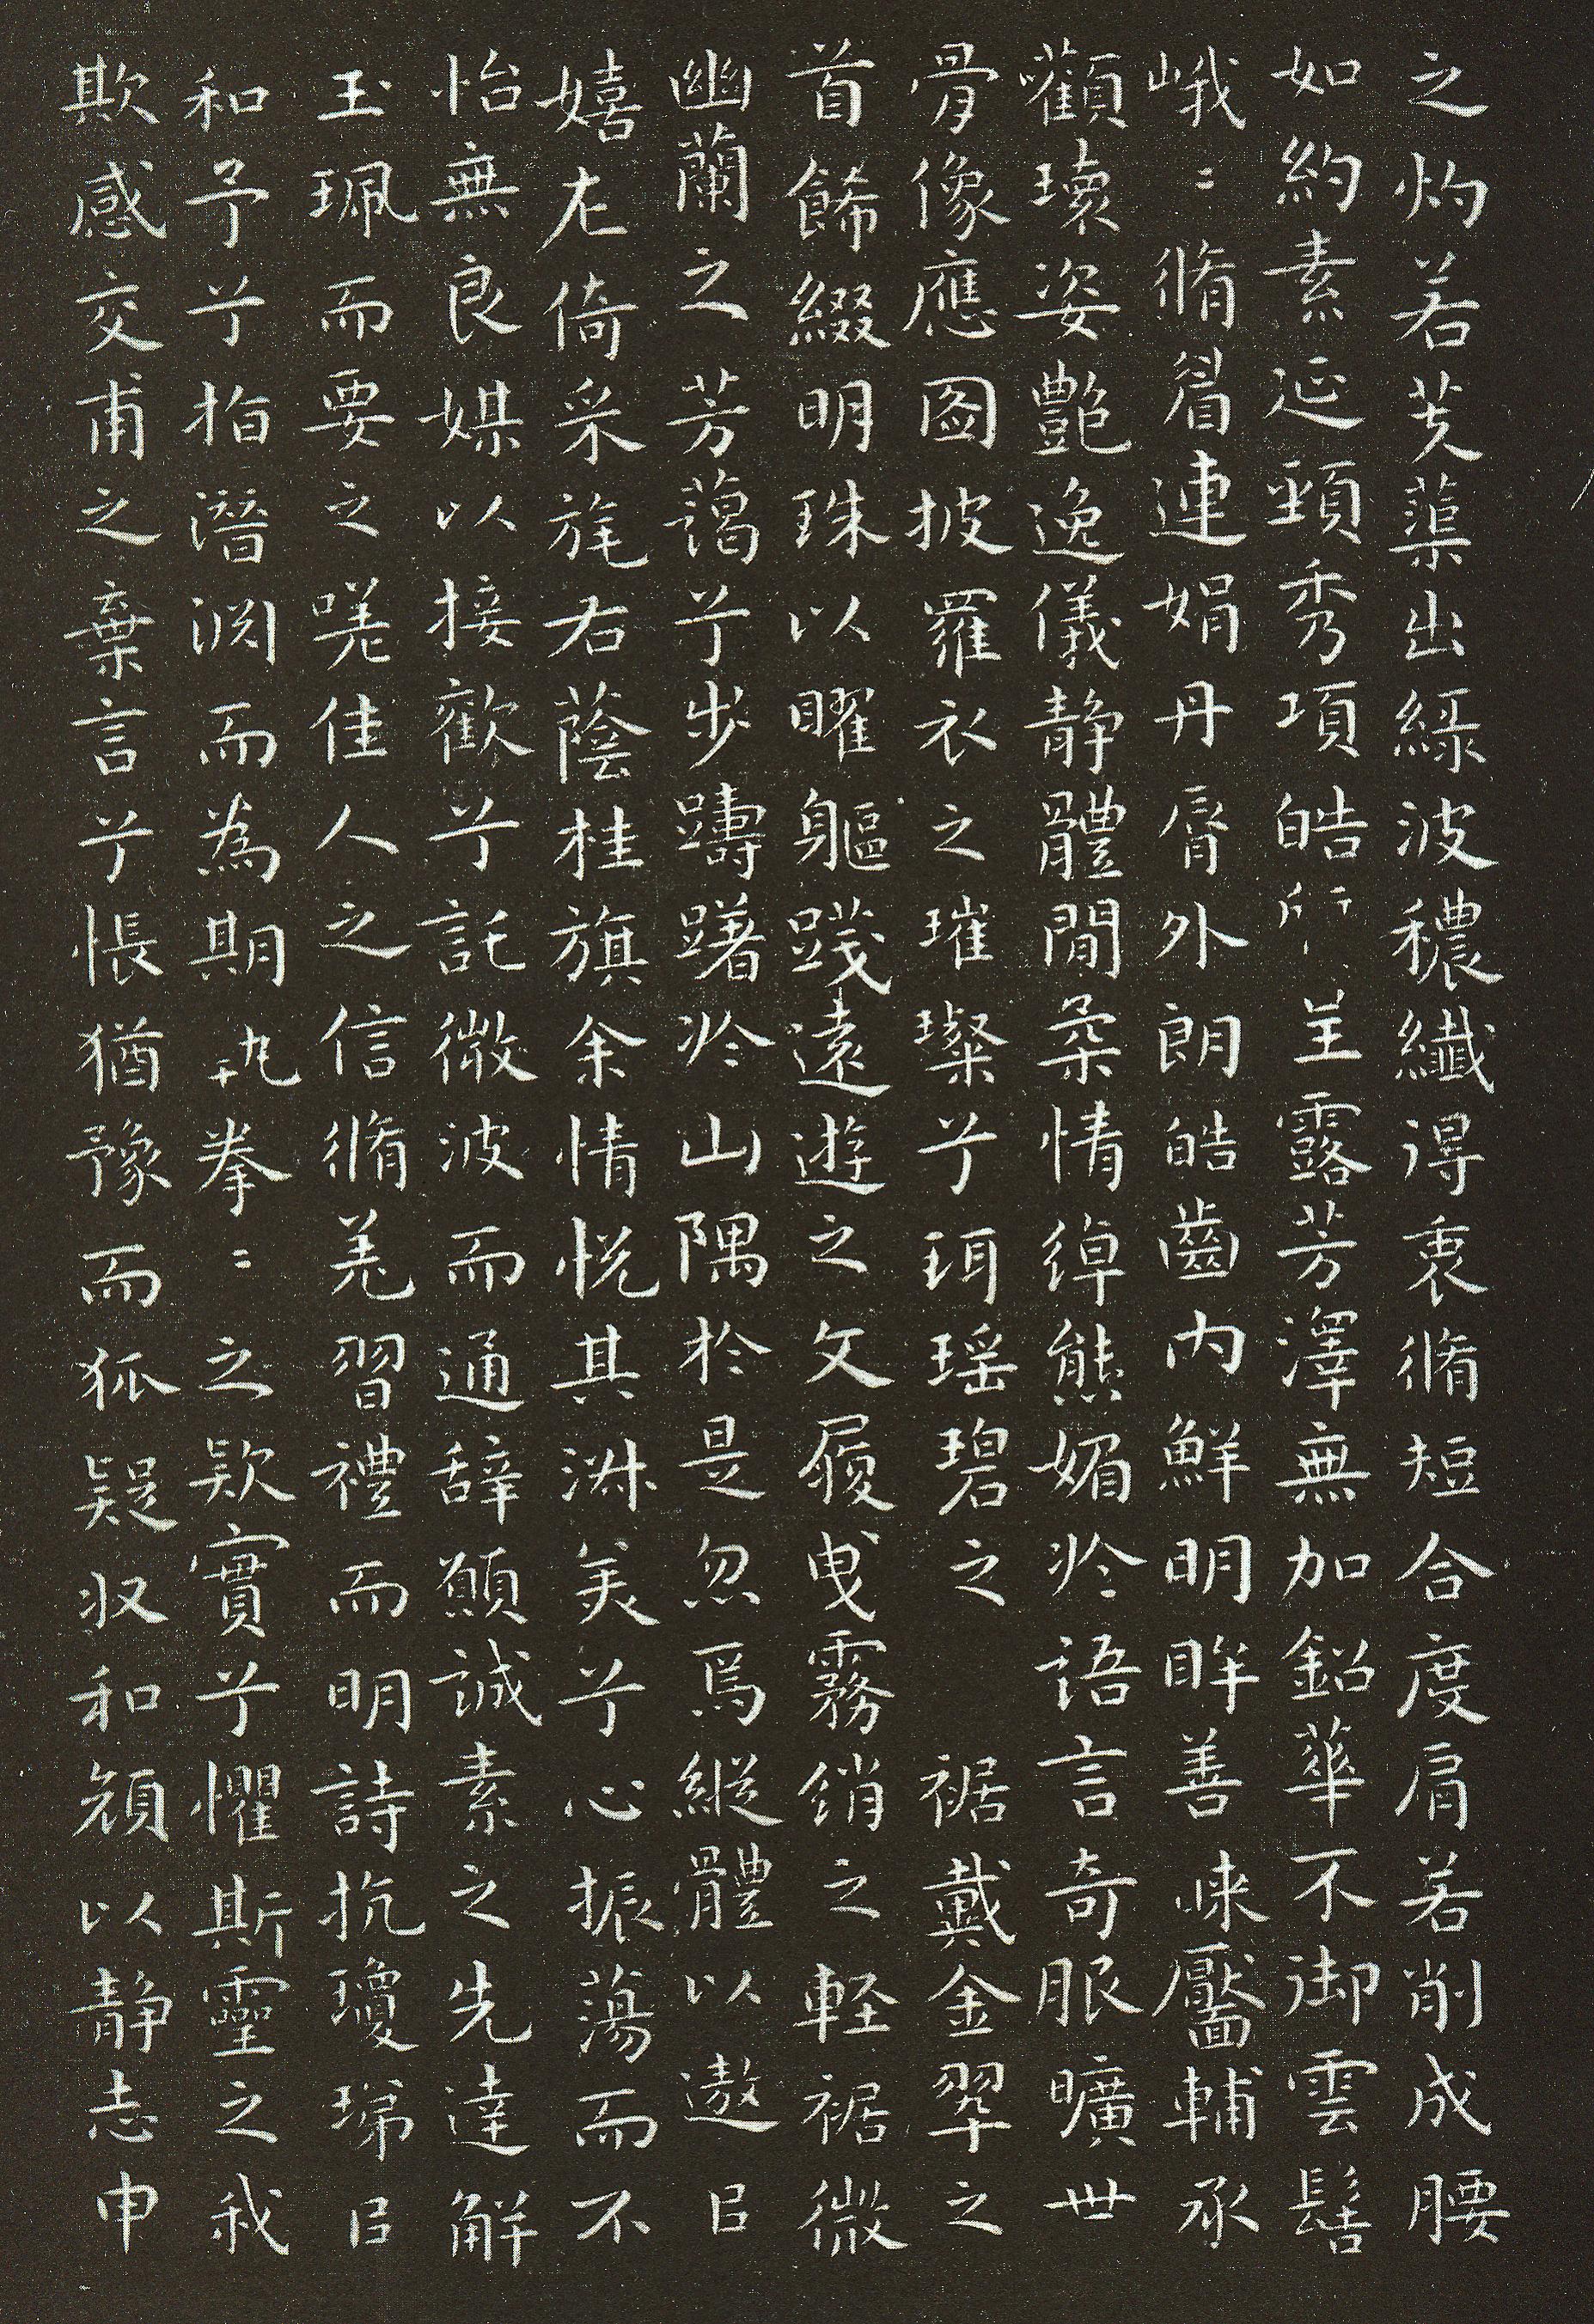 之灼若芙蕖出綠波穠纖得衷脩短合度肩若削成腰
如約素延頸秀項皓呈露芳澤無加鉛華不御雲髻
峨〻脩眉連娟丹脣外朗皓齒內鮮明眸善睞靨輔承
顴瓌姿艷逸儀靜體閒柔情綽態媚於語言奇服曠世
骨像應圖披羅衣之璀璨兮珥瑶碧之裾戴金翠之
首餙綴明珠以曜軀踐遠遊之文履曳霧綃之軽裾微
幽蘭之芳藹兮步躊躇於山隅於是忽焉縱體以遨㠯
嬉左倚采旄右蔭桂旗余情悅其淑美兮心振蕩而不
怡無良媒以接歡兮託微波而通辭願誠素之先達解
玉珮而要之嗟佳人之信脩羌習禮而明詩抗瓊珶㠯
和予兮指潛渊而為期執拳〻之欵實兮懼斯靈之我
欺感交甫之棄言兮悵猶豫而狐疑収和顏以靜志申